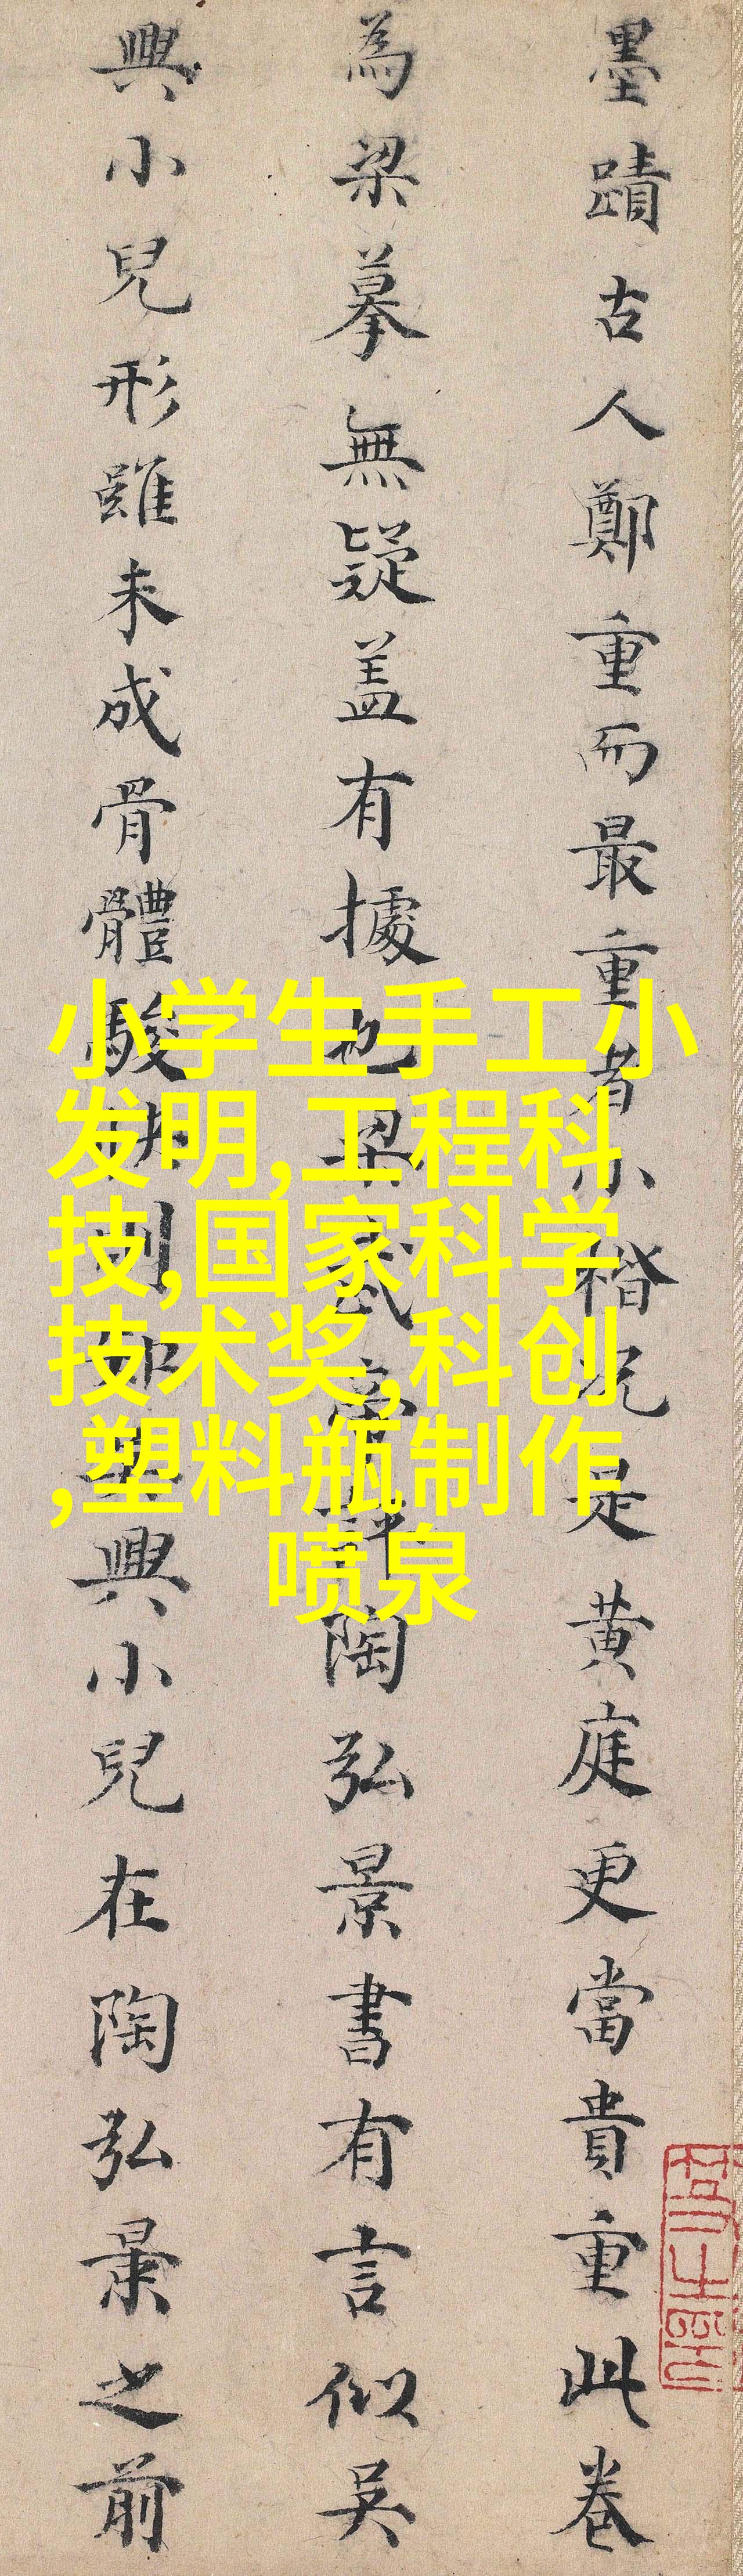 墨蹟古人鄭重而最重者小楷况是黄庭更當貴重此卷
為梁摹無疑盖有據也梁武帝評陶弘景書有言似吴
興小兒形雖未成骨體駿快則如吴興小兒在陶弘景之前
小学生手工小
发明,工程科
技,国家科学
技术奖,科创
,塑料瓶制作
喷泉